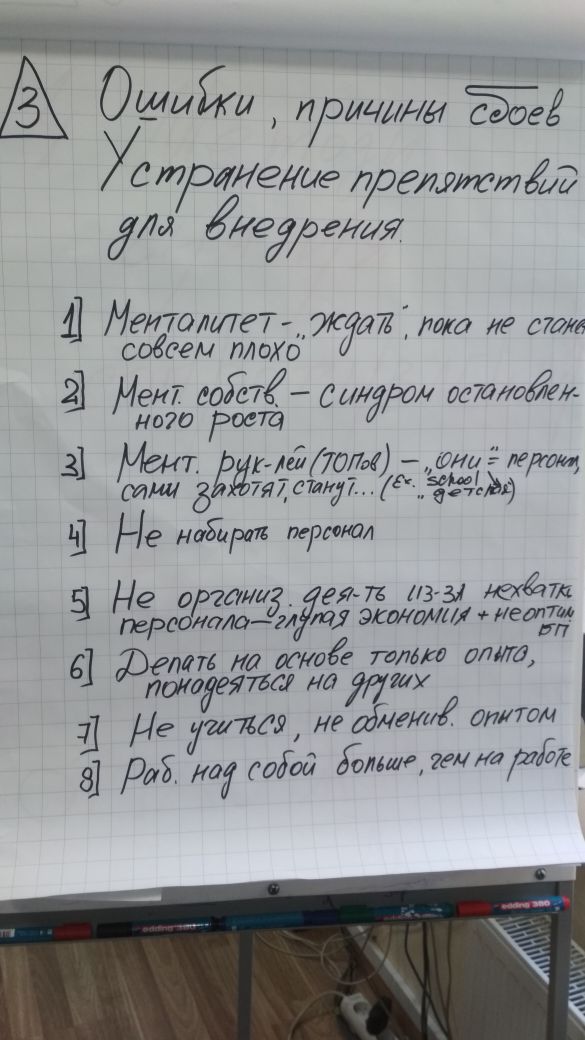 3
Ошибки, причины сбоев
Устранение препятствий
для внедрения.
1] Менталитет - „ждать", пока не стане
совсем плохо
2] Мент. собств. – синдром остановлен-
ного роста
3] Мент. рук-лей (ТОПов) – „они" = персонал,
сами захотят, станут... (Ex. school
„детская")
4] Не набирать персонал
5] Не организ. дея-ть из-за нехватк
персонала – глупая экономия + неоптим
БП
6] Делать на основе только опыта,
понадеяться на других
7] Не учиться, не обменив. опытом
8] Раб. над собой больше, чем на работе
edding 380
edding 380